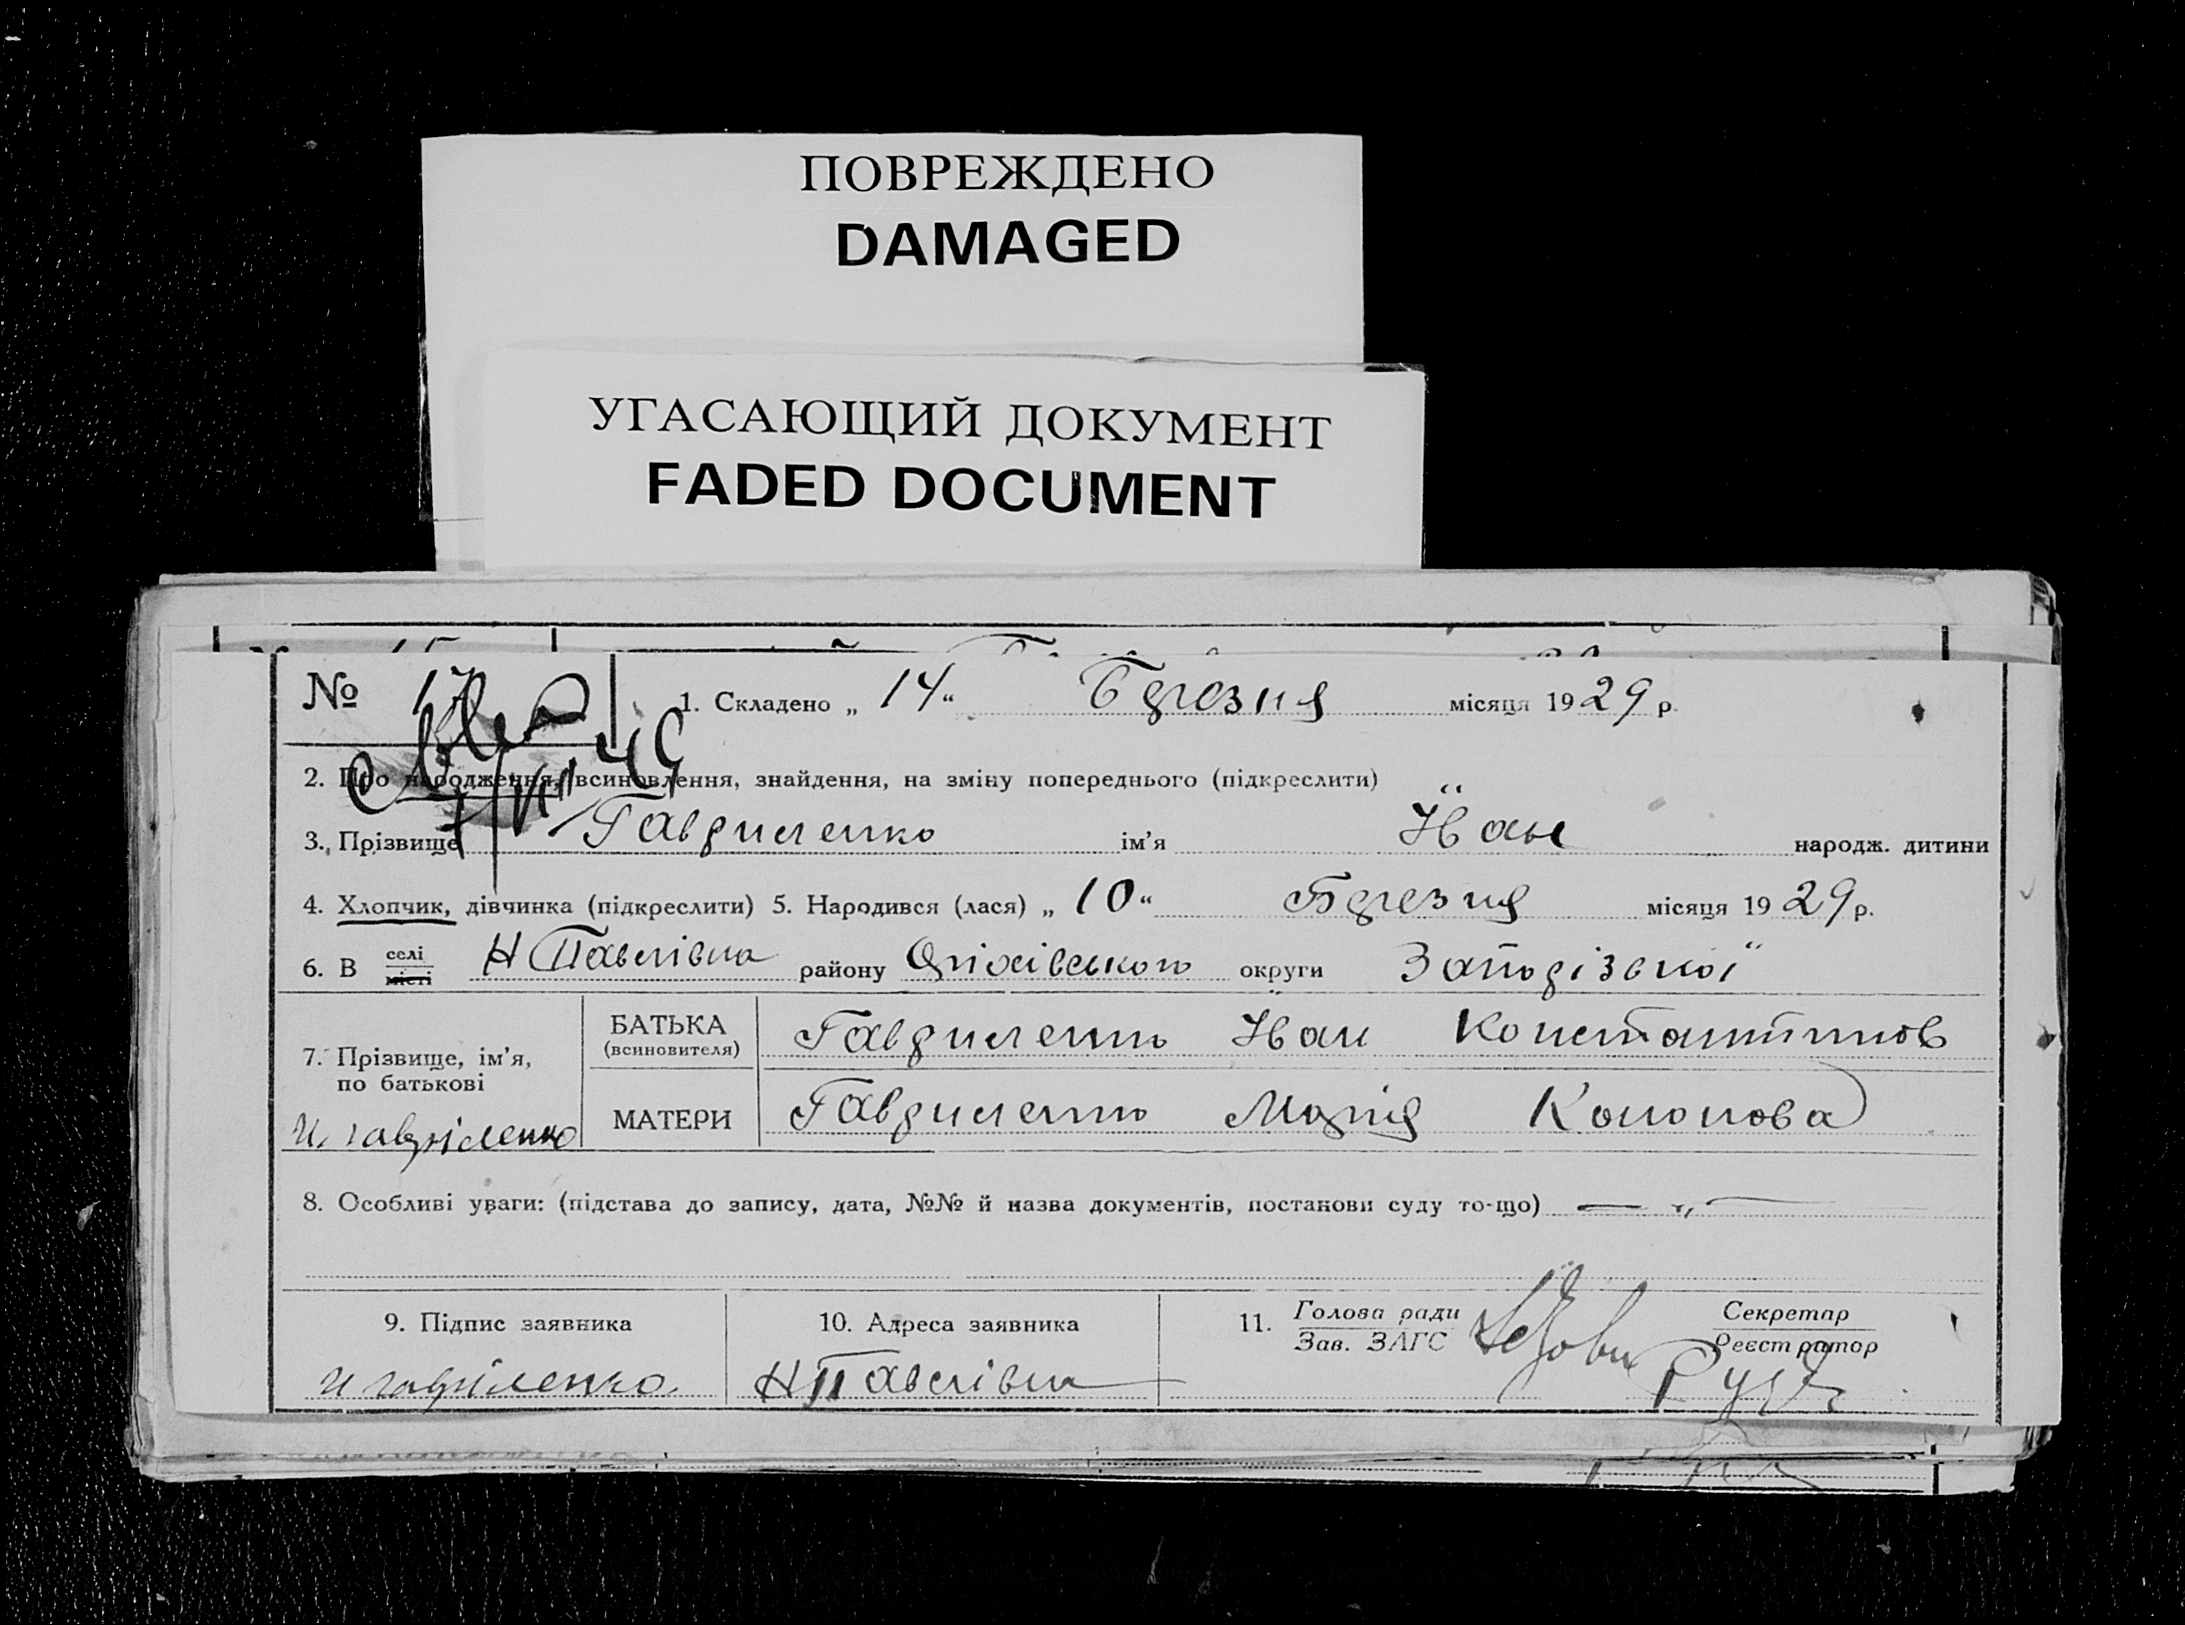 ПОВРЕЖДЕНО
DAMAGED
УГАСАЮЩИЙ ДОКУМЕНТ
FADED DOCUMENT
№ 17 1. Складено „ 14 “ Березня місяця 1929 р.
2. Про народження, всиновлення, знайдення, на зміну попереднього (підкреслити)
3. Прізвище Гавриленко ім’я Іван народж. дитини
4. Хлопчик, дівчинка (підкреслити) 5. Народився (лася) „ 10 “ Березня місяця 1929 р.
6. В селі місті Н Павлівка району Оріхівського округи Запорізької
7. Прізвище, ім’я, по батькові
БАТЬКА (всиновителя) Гавриленко Іван Константинов
МАТЕРИ Гавриленко Марія Кононова
И. гавріленко
8. Особливі уваги: (підстава до запису, дата, №№ й назва документів, постанови суду то-що) — „ —
9. Підпис заявника 10. Адреса заявника 11. Голова ради Зав. ЗАГС Секретар Реєстратор
И гавріленко Н Павлівка